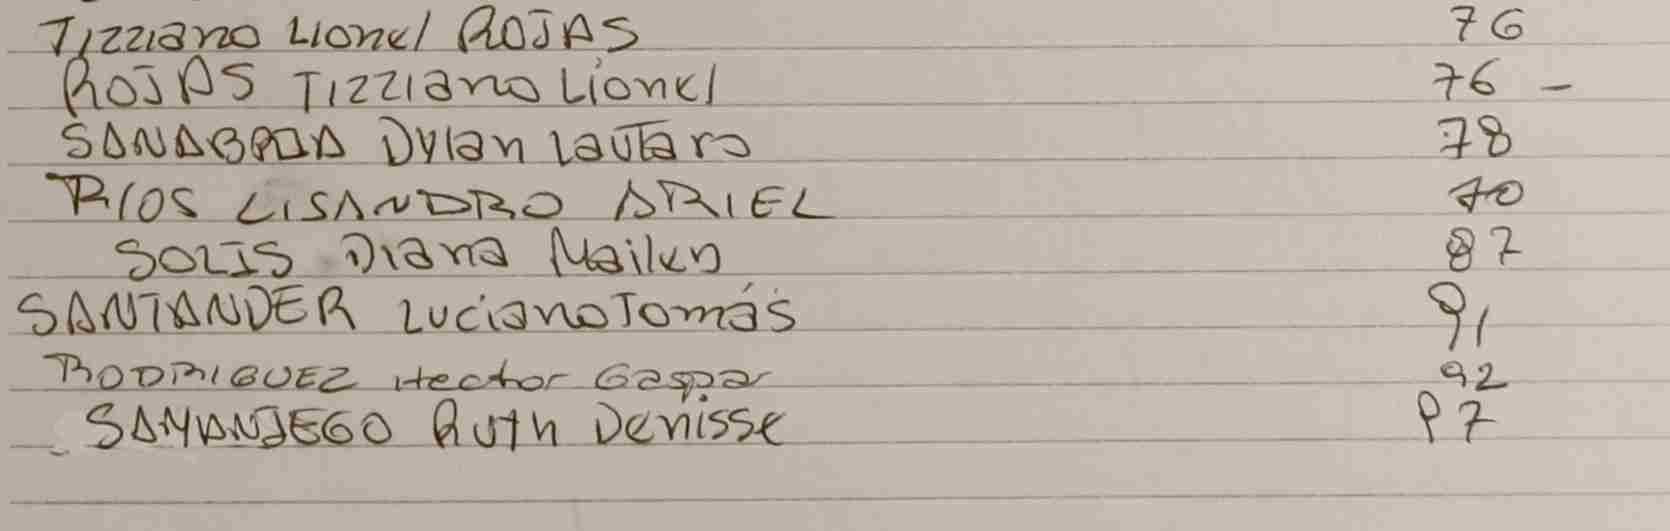 Tizziano Lionel ROJAS 76
ROJAS Tizziano Lionel 76 -
SANABRIA Dylan Lautaro 78
RIOS LISANDRO ARIEL 70
SOLIS Diana Mailen 87
SANTANDER Luciano Tomás 91
RODRIGUEZ Hector Gaspar 92
SAMANIEGO Ruth Denisse 97